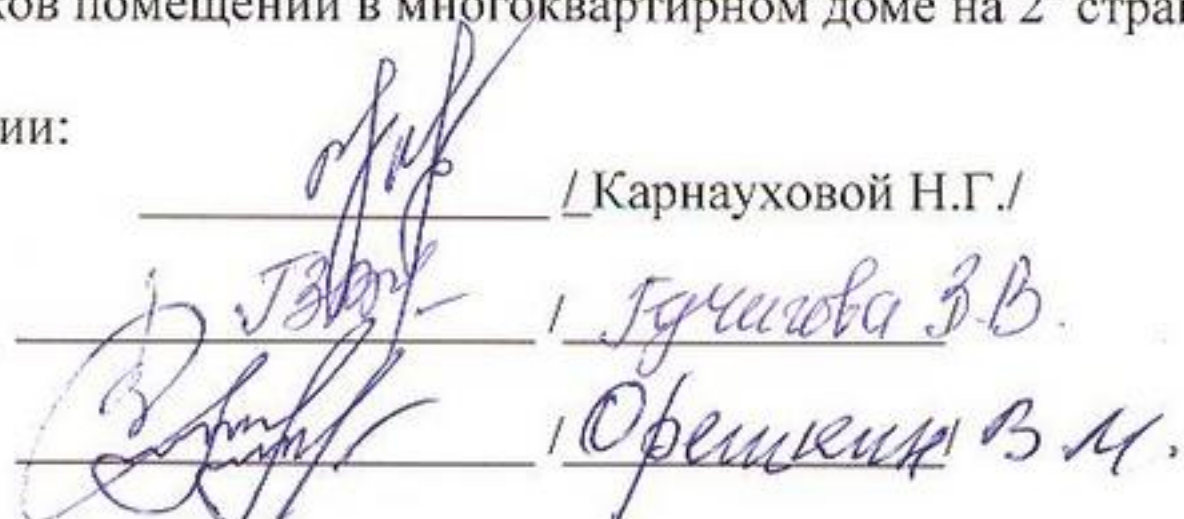 ков помещений в многоквартирном доме на 2 стран
ии:
/ Карнауховой Н.Г./
/ Гучигова З.В.
/ Орешкин / В М.